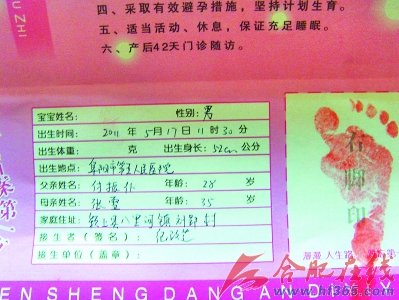 四、采取有效避孕措施，坚持计划生育。
五、适当活动、休息，保证充足睡眠。
六、产后42天门诊随访。
宝宝姓名： 性别：男
出生时间： 2011 年 5月17日11时30分
出生体重： 克 出生身长：52cm 公分
出生地点： 人民医院
父亲姓名： 年龄： 28 岁
母亲姓名： 张 年龄： 35 岁
家庭住址： 颍上县八里河镇 村
接生者（签名）：
接生单位（盖章）：
右脚印
合肥在线
www.hf365.com
EN SHENG DANG AN DE YI